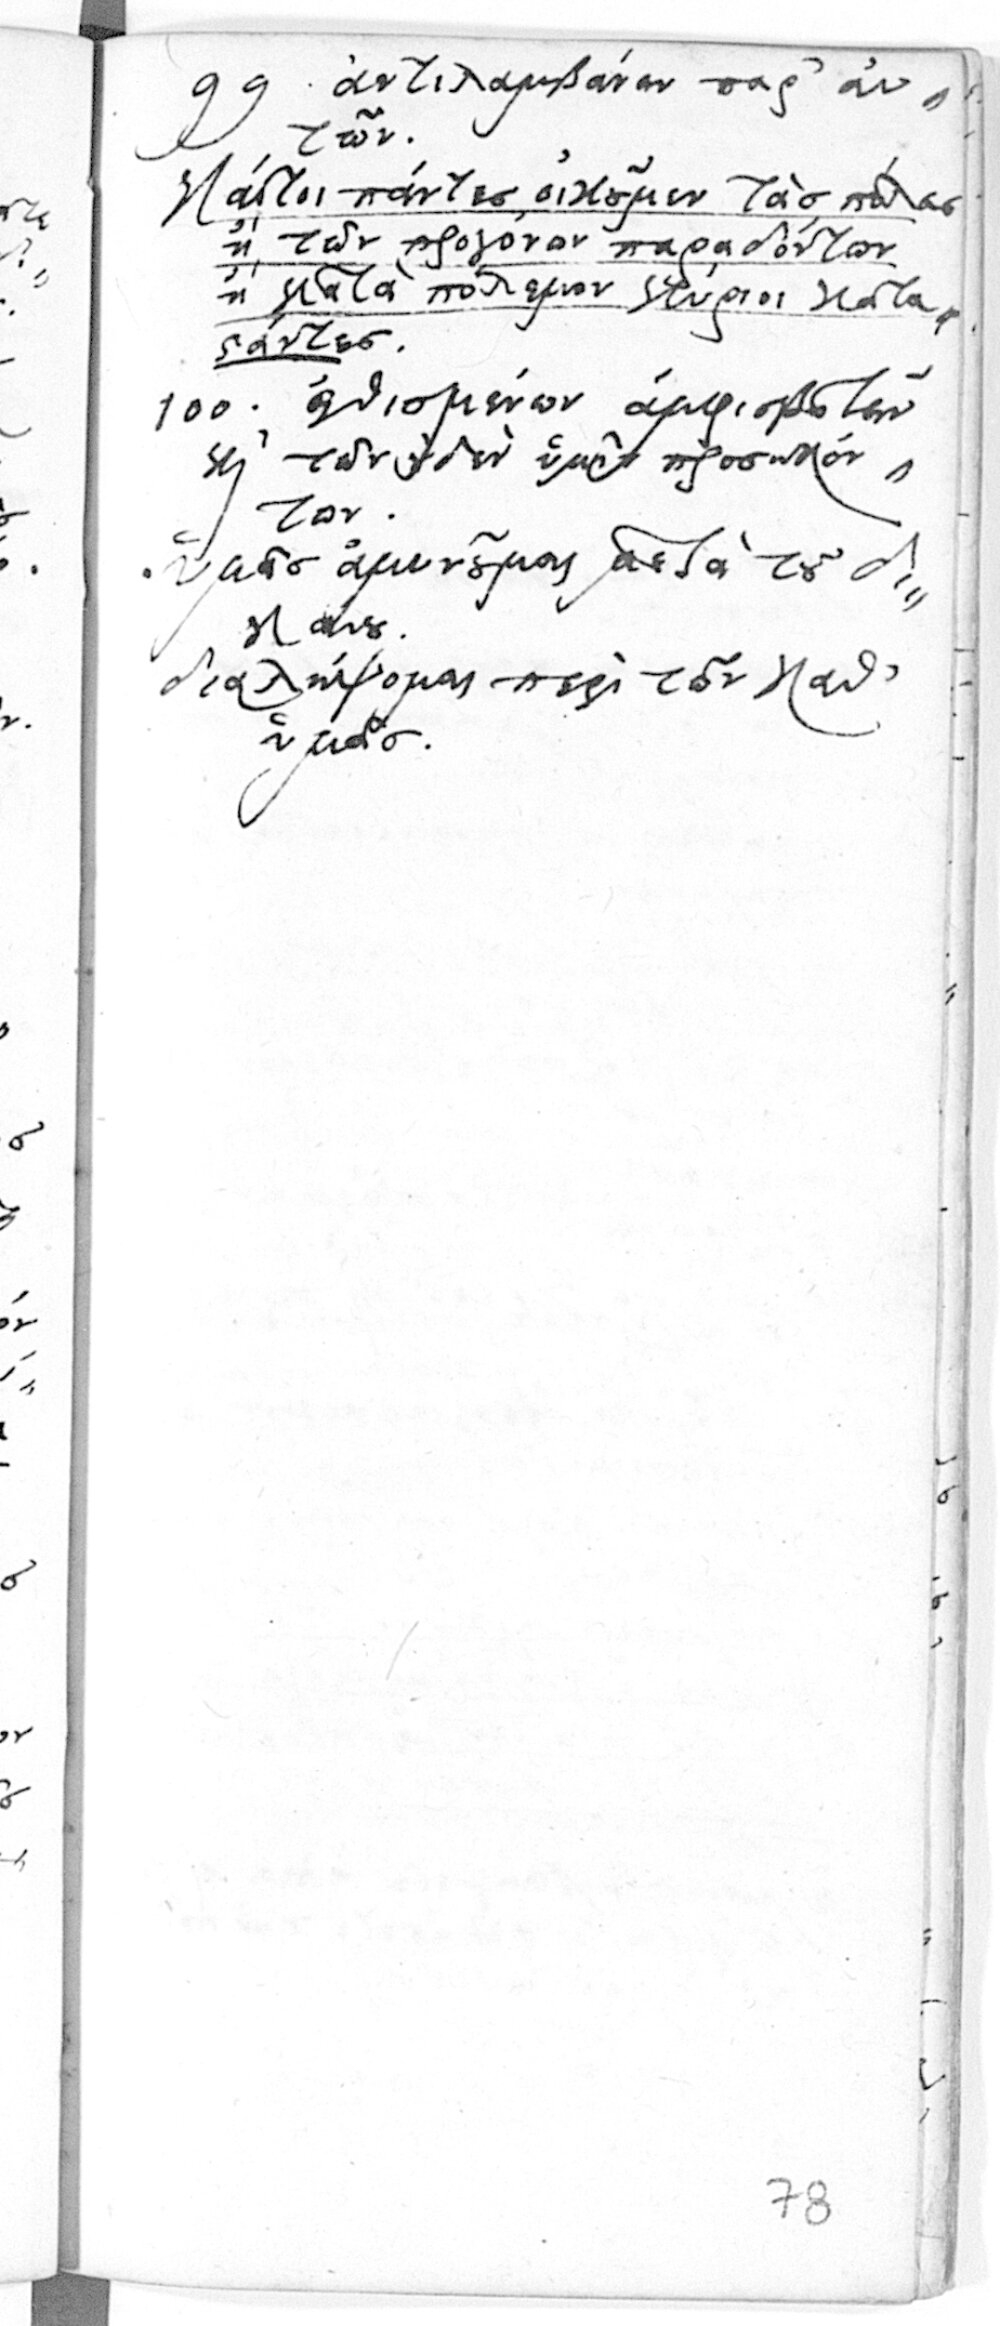 99. ἀντιλαμβάνειν παρ' αὐ„
τῶν.
καίτοι πάντες οἰκοῦμεν τὰς πόλεις
ἢ τῶν προγόνων παραδόντων
ἢ κατὰ πόλεμον κύριοι κατα„
στάντες.
100. εἰθισμένων ἀμφισβητεῖν
καὶ τῶν οὐδὲν ὑμῖν προσηκόν„
των.
. ὑμᾶς ἀμυνοῦμαι μετὰ τοῦ δι„
καίου.
διαλήψομαι περὶ τῶν καθ'
ὑμᾶς.
78